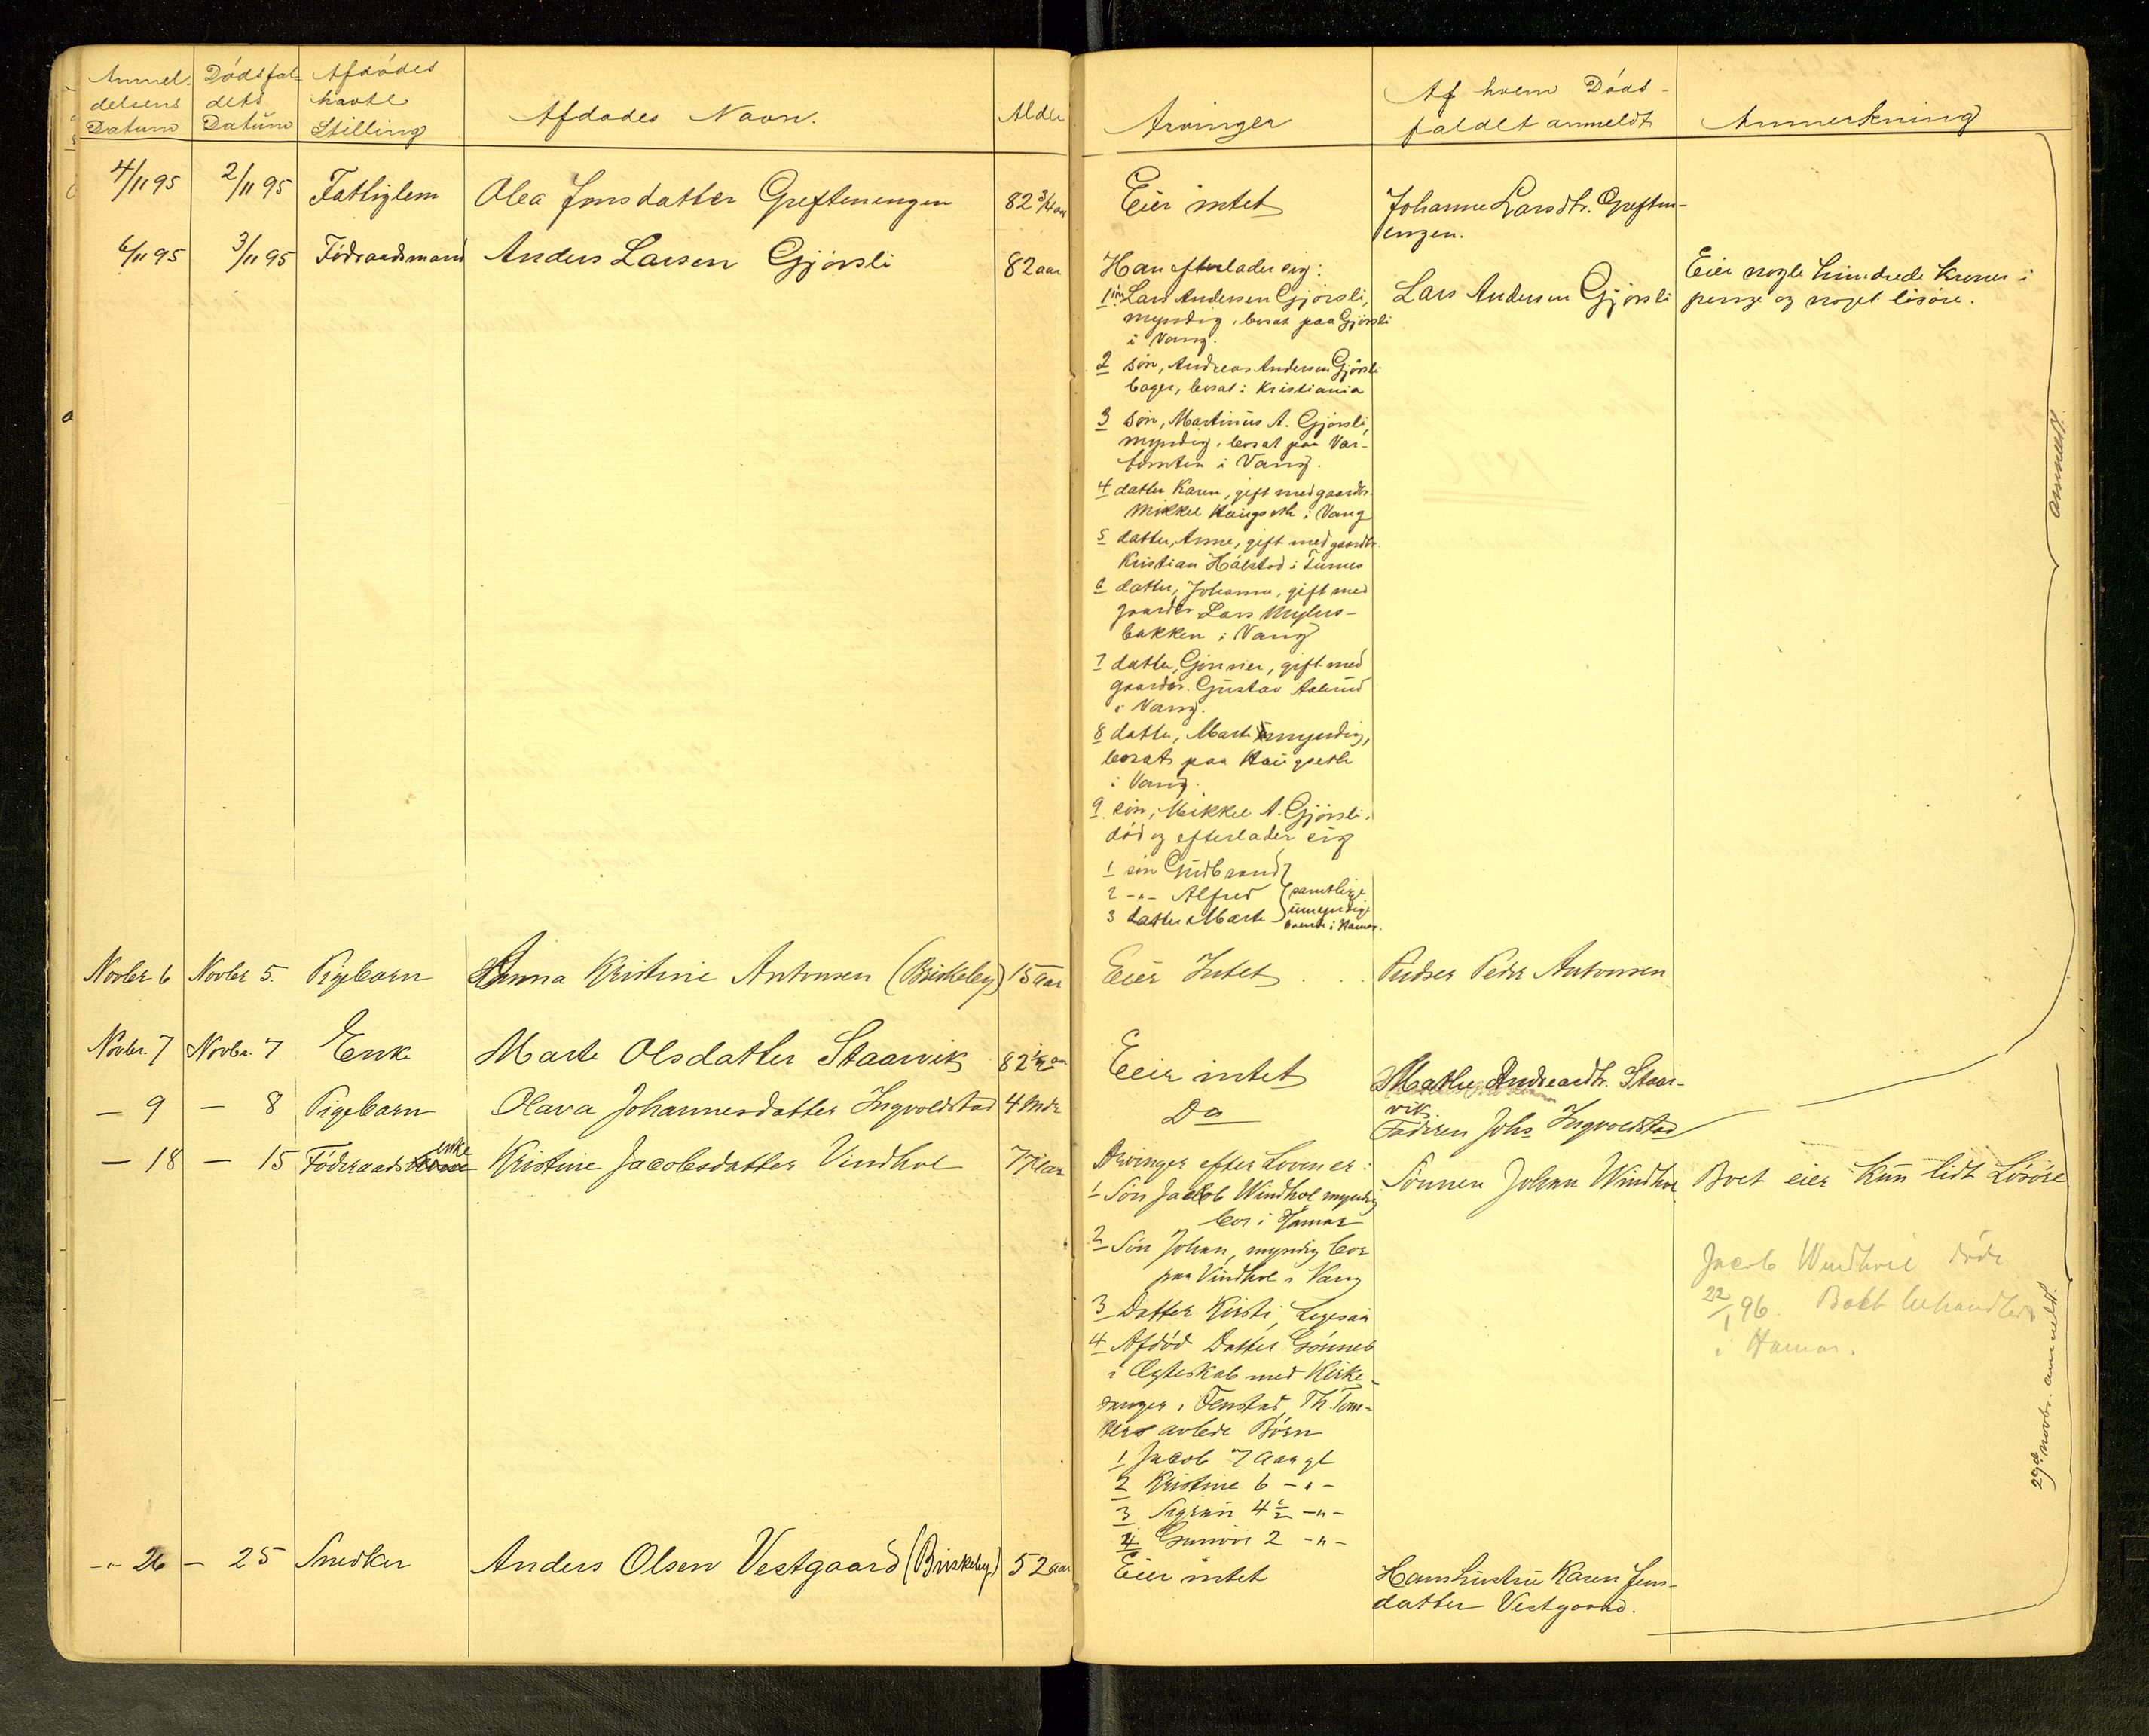 Anmel-
delsens
Datum
Dödsfal-
dets
Datum
Afdödes
havte
Stilling
Afdödes Navn.
Alder
Arvinger
Af hvem Döds-
faldet anmeldt
Anmerkning
4/11 95
2/11 95
Fattiglem
Olea Jonsdatter Greftenengen
82 3/4 aar
Eier intet
Johanne Larsdtr. Greften-
engen.
6/11 95
3/11 95
Födraadsmand
Anders Larsen Gjörsli
82 aar
Han efterlader sig:
1 sön Lars Andersen Gjörsli,
myndig, bosat paa Gjörsli
i Vang.
2 sön, Andreas Andersen Gjörsli
bager, bosat i Kristiania
3 sön, Martinus A. Gjörsli,
myndig, bosat paa Var-
tomten i Vang.
4 datter Karen, gift med gaardbr.
Mikkel Haugseth i Vang
5 datter, Anne, gift med gaardbr.
Kristian Hålstad i Furnes
6 datter, Johanne, gift med
gaardbr Lars
bakken i Vang
7 datter, gift med
gaardbr. Gustav Aalund
i Vang.
8 datter, Marte myndig,
bosat paa Haugseth
i Vang.
9. sön, Mikkel A. Gjörsli,
död og efterlader sig
1 sön Gudbrand
2 -"- Alfred
3 datter Marte
samtlige
umyndige
boende i Hamar.
Lars Andersen Gjörsli
Eier nogle hundrede kroner i
penge og noget lösöre.
anmeldt.
Novbr 6
Novbr 5.
Pigebarn
Anna Kristine Antonsen (Briskeby)
15 aar
Eier Intet
Pudser Peder Antonsen
Novbr. 7
Novbr. 7
Enke
Marte Olsdatter Staarvik
82 1/2 aar
Eeir intet
Mathe Andreasdtr. Staar-
vik.
— 9
— 8
Pigebarn
Olava Johannesdatter Ingvoldstad
4 Mdr
Do
Faderen Johs Ingvoldstad
— 18
— 15
Föderaads enke
Kristine Jacobsdatter Vindhol
77 aar
Arvinger efter Loven er:
1 Sön Jacob Windhol myndig
bor i Hamar
2 Sön Johan, myndig bor
paa Vindhol i Vang
3 Datter Kirsti,
4 Afdöd Datter Gönner
i Ægteskab med Kirke-
sanger i Fenstad, Th. Tom-
avlede Börn
1 Jacob 7 Aar gl
2 Kristine 6 -"-
3 Sigrun 4 1/2 -"-
4 Gunvor 2 -"-
Sönnen Johan Windhol
Boet eier Kun lidt Lösöre
Jacob Windhol döde
22/1 96. Boet behandles
i Hamar.
29de novbr. anmeldt.
-"- 26
— 25
Snedker
Anders Olsen Vestgaard (Briskeby)
52 aar
Eier intet
Hans hustru Karen Jens-
datter Vestgaard.